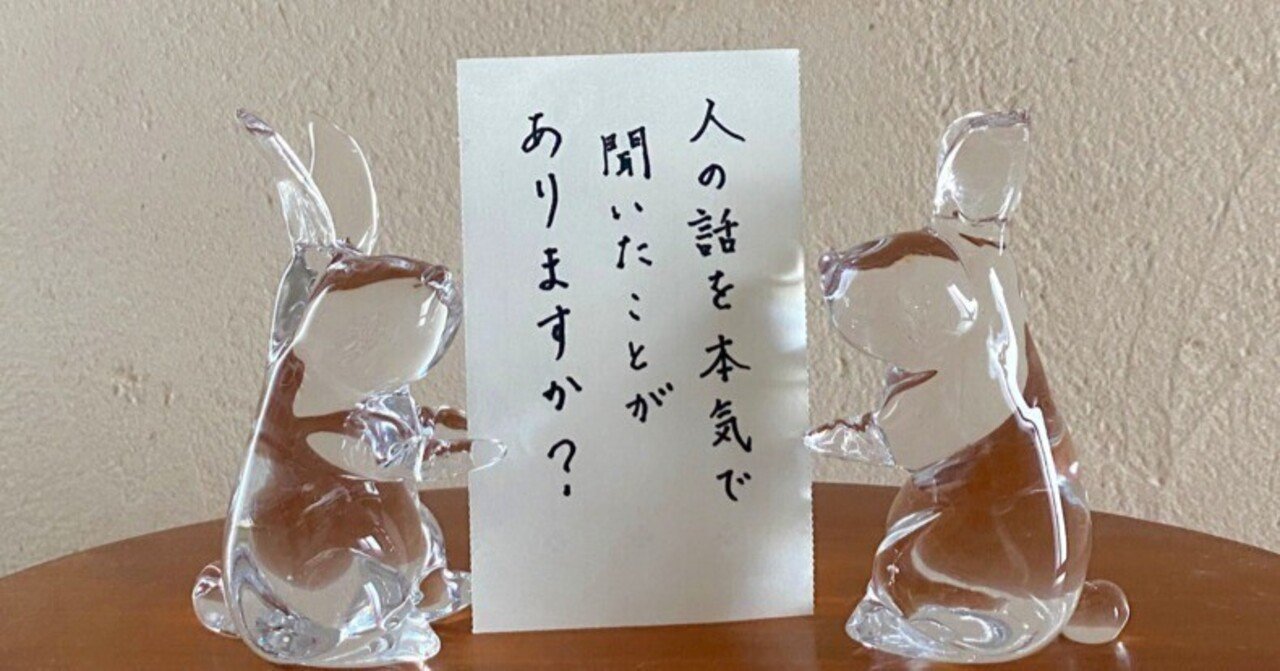 人の話を本気で
聞いたことが
ありますか?